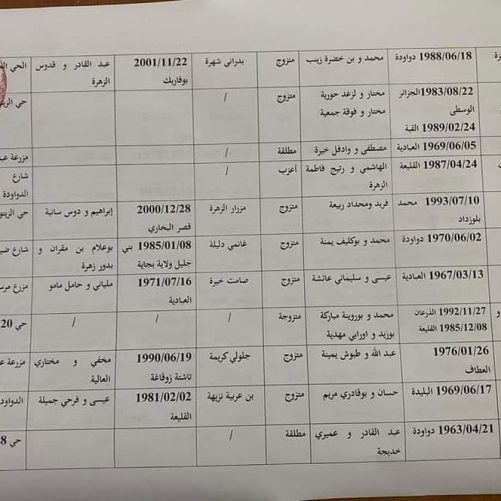 1988/06/18 دواودة محمد و بن خضرة زينب متزوج بدراني شهرة 2001/11/22 عبد القادر و قدوس الحي
بوفاريك الزهرة
1983/08/22 الجزائر مختار و لزعد حورية متزوج / حي
الوسطى مختار و فوقة جمعية
1989/02/24 القبة
1969/06/05 العبادية مصطفى و وادفل خيرة مطلقة / مزرعة
1987/04/24 القليعة الهاشمي و رتيح فاطمة أعزب / شارع
الزهرة الدواودة
1993/07/10 محمد فريد ومحداد ربيعة متزوج مزرار الزهرة 2000/12/28 إبراهيم و دوس سانية حي
بلوزداد قصر البخاري
1970/06/02 دواودة محمد و بوكليف يمنة متزوج غانمي دليلة 1985/01/08 بني بوعلام بن مقران و شارع
جليل ولاية بجاية بدور زهرة
1967/03/13 العبادية عيسى و سليماني عائشة متزوج صامت خيرة 1971/07/16 ملياني و حامل مامو مزرع
العبادية
و 1992/11/27 الذرعان محمد و بوروينة مباركة متزوجة / / / حي 20
1985/12/08 القليعة بوزيد و اورابي مهدية
1976/01/26 عبد الله و طبوش يمينة متزوج جلولي كريمة 1990/06/19 مخفي و مختاري مزرعة
العطاف تاشتة زوقاغة العالية
1969/06/17 البليدة حسان و بوقادري مريم متزوج بن عربية نزيهة 1981/02/02 عيسى و فرحي جميلة الدواود
القليعة
1963/04/21 دواودة عبد القادر و عميري مطلقة / حي 8
خديجة